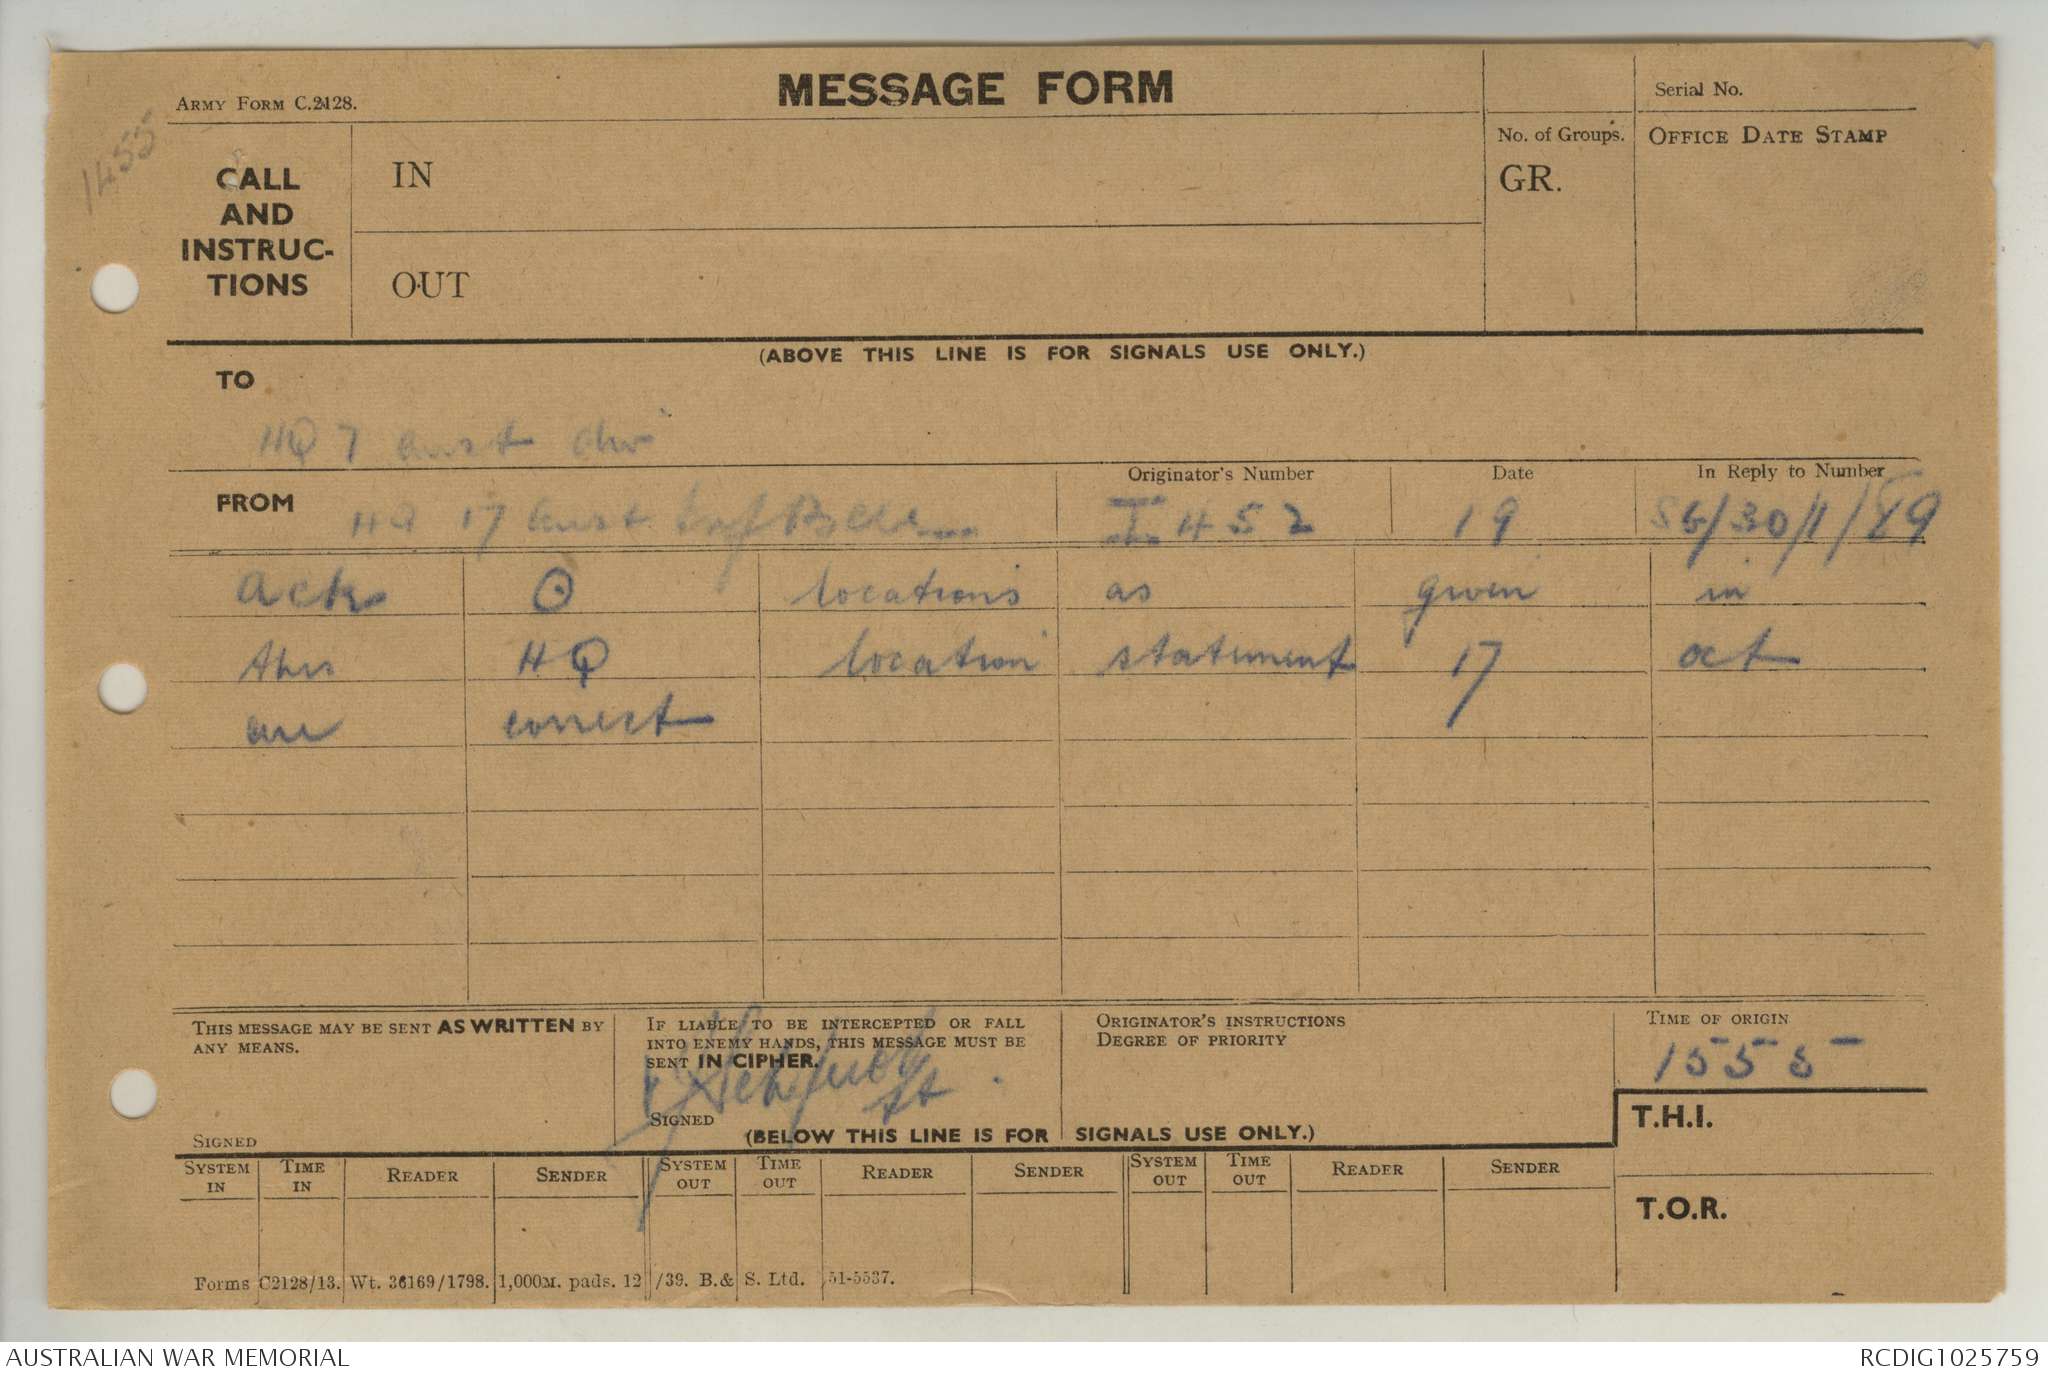 1455
ARMY FORM C.2128.
MESSAGE FORM
Serial No.
CALL AND INSTRUC-TIONS
IN
OUT
No. of Groups.
GR.
OFFICE DATE STAMP
(ABOVE THIS LINE IS FOR SIGNALS USE ONLY.)
TO
HQ 7 Aust Div
FROM HQ 17 Aust Inf Bde
Originator's Number I 452
Date 19
In Reply to Number SG/30/1/89
ack ⊙ locations as given in
this HQ location statement 17 oct
are correct
THIS MESSAGE MAY BE SENT AS WRITTEN BY
ANY MEANS.
SIGNED
IF LIABLE TO BE INTERCEPTED OR FALL
INTO ENEMY HANDS, THIS MESSAGE MUST BE
SENT IN CIPHER.
Lt
SIGNED
ORIGINATOR'S INSTRUCTIONS
DEGREE OF PRIORITY
TIME OF ORIGIN
1555
T.H.I.
T.O.R.
(BELOW THIS LINE IS FOR SIGNALS USE ONLY.)
SYSTEM IN TIME IN READER SENDER SYSTEM OUT TIME OUT READER SENDER SYSTEM OUT TIME OUT READER SENDER
Forms C2128/13. Wt. 36169/1798. 1,000M. pads. 12/39. B.& S. Ltd. 51-5537.
AUSTRALIAN WAR MEMORIAL
RCDIG1025759